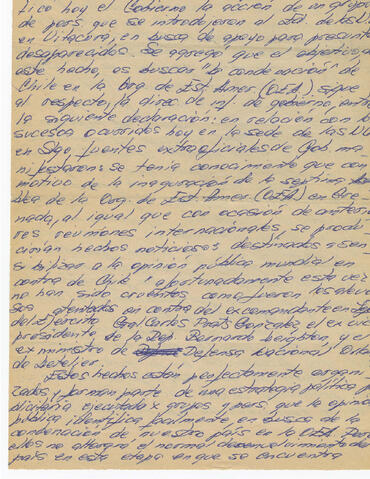 tico hoy el Gobierno la acción de un grupo
de pers, que se introdujeron al Ed. de las UU
en Vitacura, en busca de apoyo para presuntos
desaparecidos. Se agregó que el objetivo de
este hecho, es buscar "la condenación" de
Chile en la Org. de Est. Amer. (OEA). sigue
al respecto, la direc. de inf. de gobierno, entre
la siguiente declaración: en relación con los
sucesos ocurridos hoy en la sede de las UU
en Stgo, fuentes extraoficiales de Gob. ma
nifestaron: se tenía conocimiento que con
motivo de la inauguración de la septima
blea de la Org. de Est. Amer. (OEA) en Gre-
nada, al igual que con ocasión de anterio
res reuniones internacionales, se produ-
cirían hechos noticiosos destinados a sen-
sibilizar a la opinión pública mundial en
contra de Chile afortunadamente esta vez
no han sido cruentos como fueron los aleve
sos atentados en contra del excomandante en Jefe
del Ejército Gral Carlos Prats González, el ex vice
presidente de la Rep. Bernardo Leighton, y el
ex ministro de Defensa Nacional Orlan
do Letelier.
Estos hechos están perfectamente organi
zados y forman parte de una estrategia política
dicitaria ejecutada x grupos y pers, que la opinión
pública identifica facilmente en busca de la
condenación de nuestro país en la OEA. Pero
ellos no alterará el normal desenvolvimiento del
país en esta etapa en que se encuentra